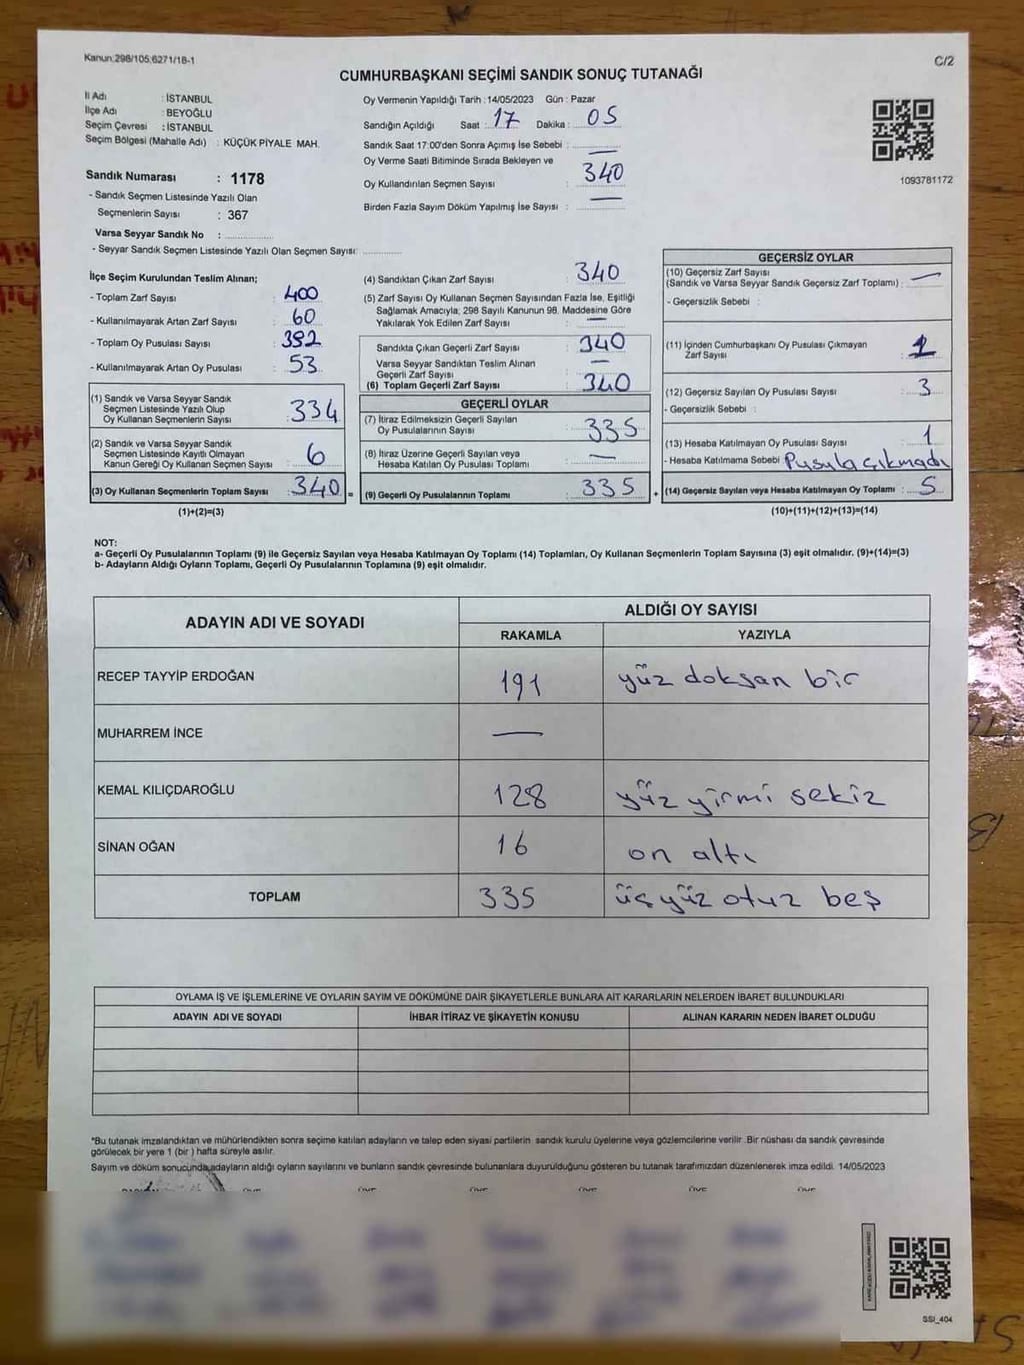 Kanun:298/105;6271/18-1
C/2
CUMHURBAŞKANI SEÇİMİ SANDIK SONUÇ TUTANAĞI
İl Adı : İSTANBUL
İlçe Adı : BEYOĞLU
Seçim Çevresi : İSTANBUL
Seçim Bölgesi (Mahalle Adı) : KÜÇÜK PİYALE MAH.
Sandık Numarası : 1178
- Sandık Seçmen Listesinde Yazılı Olan
Seçmenlerin Sayısı : 367
Varsa Seyyar Sandık No :
- Seyyar Sandık Seçmen Listesinde Yazılı Olan Seçmen Sayısı:
Oy Vermenin Yapıldığı Tarih : 14/05/2023 Gün : Pazar
Sandığın Açıldığı Saat : 17 Dakika : 05
Sandık Saat 17:00'den Sonra Açmış İse Sebebi : —
Oy Verme Saati Bitiminde Sırada Bekleyen ve
Oy Kullandırılan Seçmen Sayısı : 340
Birden Fazla Sayım Döküm Yapılmış İse Sayısı : —
1093781172
İlçe Seçim Kurulundan Teslim Alınan;
- Toplam Zarf Sayısı : 400
- Kullanılmayarak Artan Zarf Sayısı : 60
- Toplam Oy Pusulası Sayısı : 392
- Kullanılmayarak Artan Oy Pusulası : 53
(1) Sandık ve Varsa Seyyar Sandık
Seçmen Listesinde Yazılı Olup
Oy Kullanan Seçmenlerin Sayısı : 334
(2) Sandık ve Varsa Seyyar Sandık
Seçmen Listesinde Kayıtlı Olmayan
Kanun Gereği Oy Kullanan Seçmen Sayısı : 6
(3) Oy Kullanan Seçmenlerin Toplam Sayısı : 340 =
(1)+(2)=(3)
(4) Sandıktan Çıkan Zarf Sayısı : 340
(5) Zarf Sayısı Oy Kullanan Seçmen Sayısından Fazla İse, Eşitliği
Sağlamak Amacıyla; 298 Sayılı Kanunun 98. Maddesine Göre
Yakılarak Yok Edilen Zarf Sayısı : —
Sandıkta Çıkan Geçerli Zarf Sayısı : 340
Varsa Seyyar Sandıktan Teslim Alınan
Geçerli Zarf Sayısı : —
(6) Toplam Geçerli Zarf Sayısı : 340
GEÇERLİ OYLAR
(7) İtiraz Edilmeksizin Geçerli Sayılan
Oy Pusulalarının Sayısı : 335
(8) İtiraz Üzerine Geçerli Sayılan veya
Hesaba Katılan Oy Pusulası Toplamı : —
(9) Geçerli Oy Pusulalarının Toplamı : 335 +
GEÇERSİZ OYLAR
(10) Geçersiz Zarf Sayısı
(Sandık ve Varsa Seyyar Sandık Geçersiz Zarf Toplamı) : —
- Geçersizlik Sebebi :
(11) İçinden Cumhurbaşkanı Oy Pusulası Çıkmayan
Zarf Sayısı : 1
(12) Geçersiz Sayılan Oy Pusulası Sayısı : 3
- Geçersizlik Sebebi :
(13) Hesaba Katılmayan Oy Pusulası Sayısı : 1
- Hesaba Katılmama Sebebi : Pusula çıkmadı
(14) Geçersiz Sayılan veya Hesaba Katılmayan Oy Toplamı : 5
(10)+(11)+(12)+(13)=(14)
NOT:
a- Geçerli Oy Pusulalarının Toplamı (9) ile Geçersiz Sayılan veya Hesaba Katılmayan Oy Toplamı (14) Toplamları, Oy Kullanan Seçmenlerin Toplam Sayısına (3) eşit olmalıdır. (9)+(14)=(3)
b- Adayların Aldığı Oyların Toplamı, Geçerli Oy Pusulalarının Toplamına (9) eşit olmalıdır.
ADAYIN ADI VE SOYADI
ALDIĞI OY SAYISI
RAKAMLA YAZIYLA
RECEP TAYYİP ERDOĞAN 191 yüz doksan bir
MUHARREM İNCE —
KEMAL KILIÇDAROĞLU 128 yüz yirmi sekiz
SİNAN OĞAN 16 on altı
TOPLAM 335 üç yüz otuz beş
OYLAMA İŞ VE İŞLEMLERİNE VE OYLARIN SAYIM VE DÖKÜMÜNE DAİR ŞİKAYETLERLE BUNLARA AİT KARARLARIN NELERDEN İBARET BULUNDUKLARI
ADAYIN ADI VE SOYADI İHBAR İTİRAZ VE ŞİKAYETİN KONUSU ALINAN KARARIN NEDEN İBARET OLDUĞU
*Bu tutanak imzalandıktan ve mühürlendikten sonra seçime katılan adayların ve talep eden siyasi partilerin sandık kurulu üyelerine veya gözlemcilerine verilir .Bir nüshası da sandık çevresinde
görülecek bir yere 1 (bir ) hafta süreyle asılır.
Sayım ve döküm sonucunda adayların aldığı oyların sayılarını ve bunların sandık çevresinde bulunanlara duyurulduğunu gösteren bu tutanak tarafımızdan düzenlenerek imza edildi. 14/05/2023
SSI_404